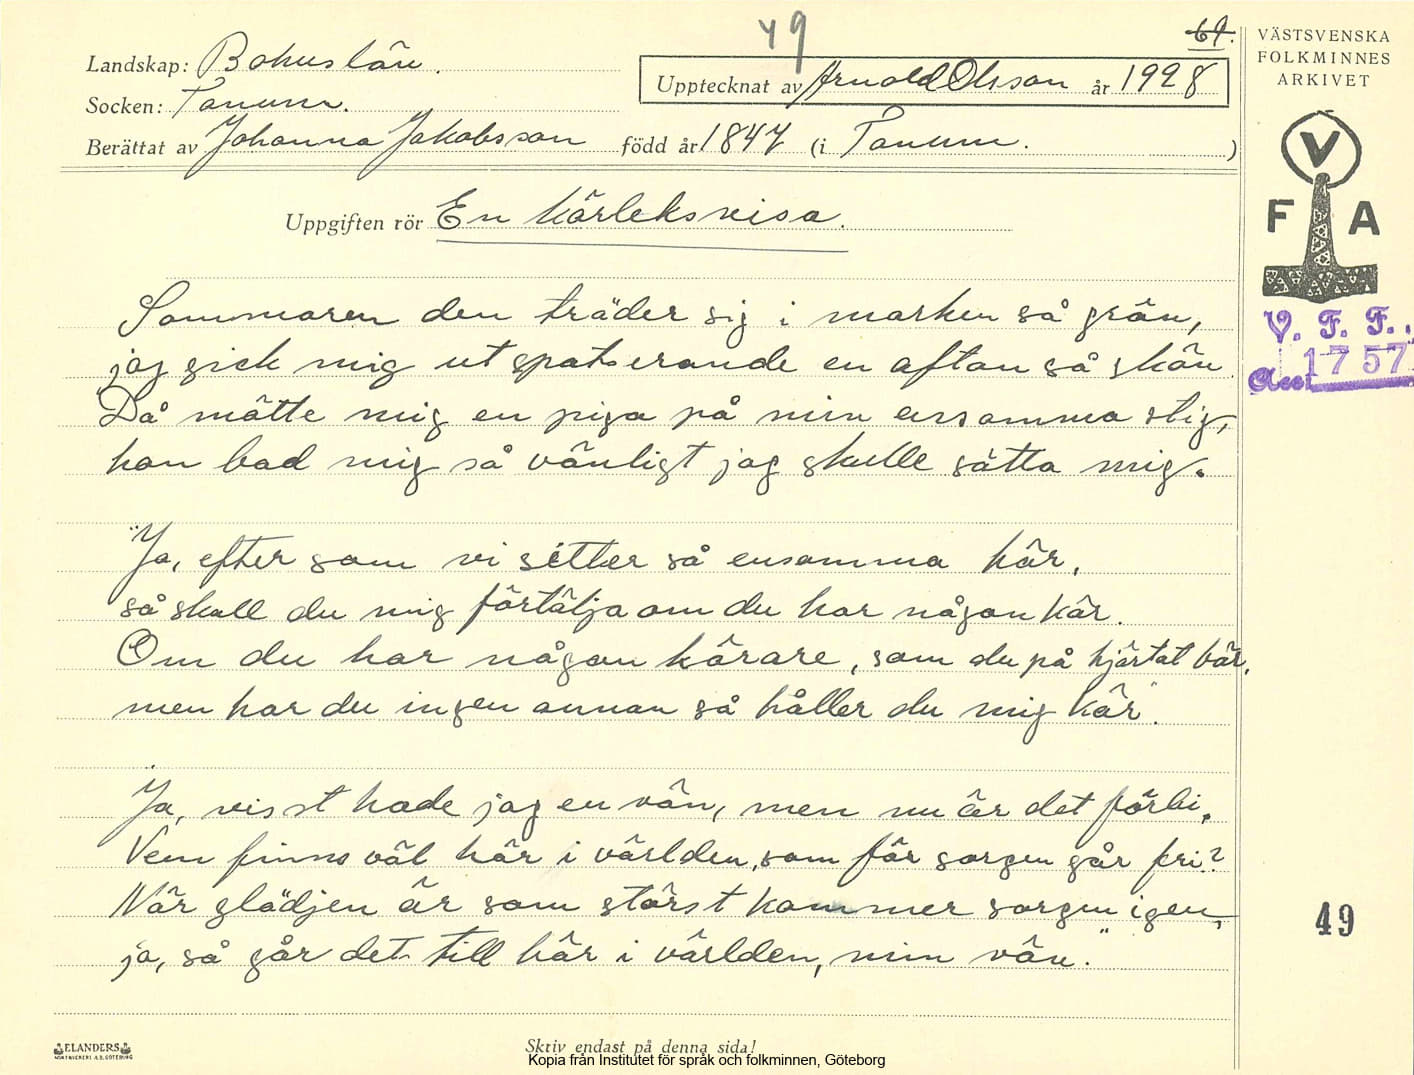 49
61.
Landskap: Bohuslän.
Upptecknat av Arnold Olsson år 1928
Socken: Tanum.
Berättat av Johanna Jakobsson född år 1847 (i Tanum. )
Uppgiften rör En kärleksvisa.
Sommaren den träder sig i marken så grön,
jag gick mig ut spatserande en afton så skön
Då mötte mig en piga på min ensamma stig,
hon bad mig så vänligt jag skulle sätta mig.
"Ja, efter som vi sitter så ensamma här,
så skall du mig förtälja om du har någon kär.
Om du har någon kärare, som du på hjärtat bär,
men har du ingen annan så håller du mig kär".
"Ja, visst hade jag en vän, men nu är det förbi,
Vem finns väl här i världen, som för sorgen går fri?
När glädjen är som störst kommer sorgen igen,
ja, så går det till här i världen, min vän."
VÄSTSVENSKA
FOLKMINNES
ARKIVET
V
F A
V. F. F.
Acc. 1757
49
ELANDERS
Skriv endast på denna sida!
Kopia från Institutet för språk och folkminnen, Göteborg